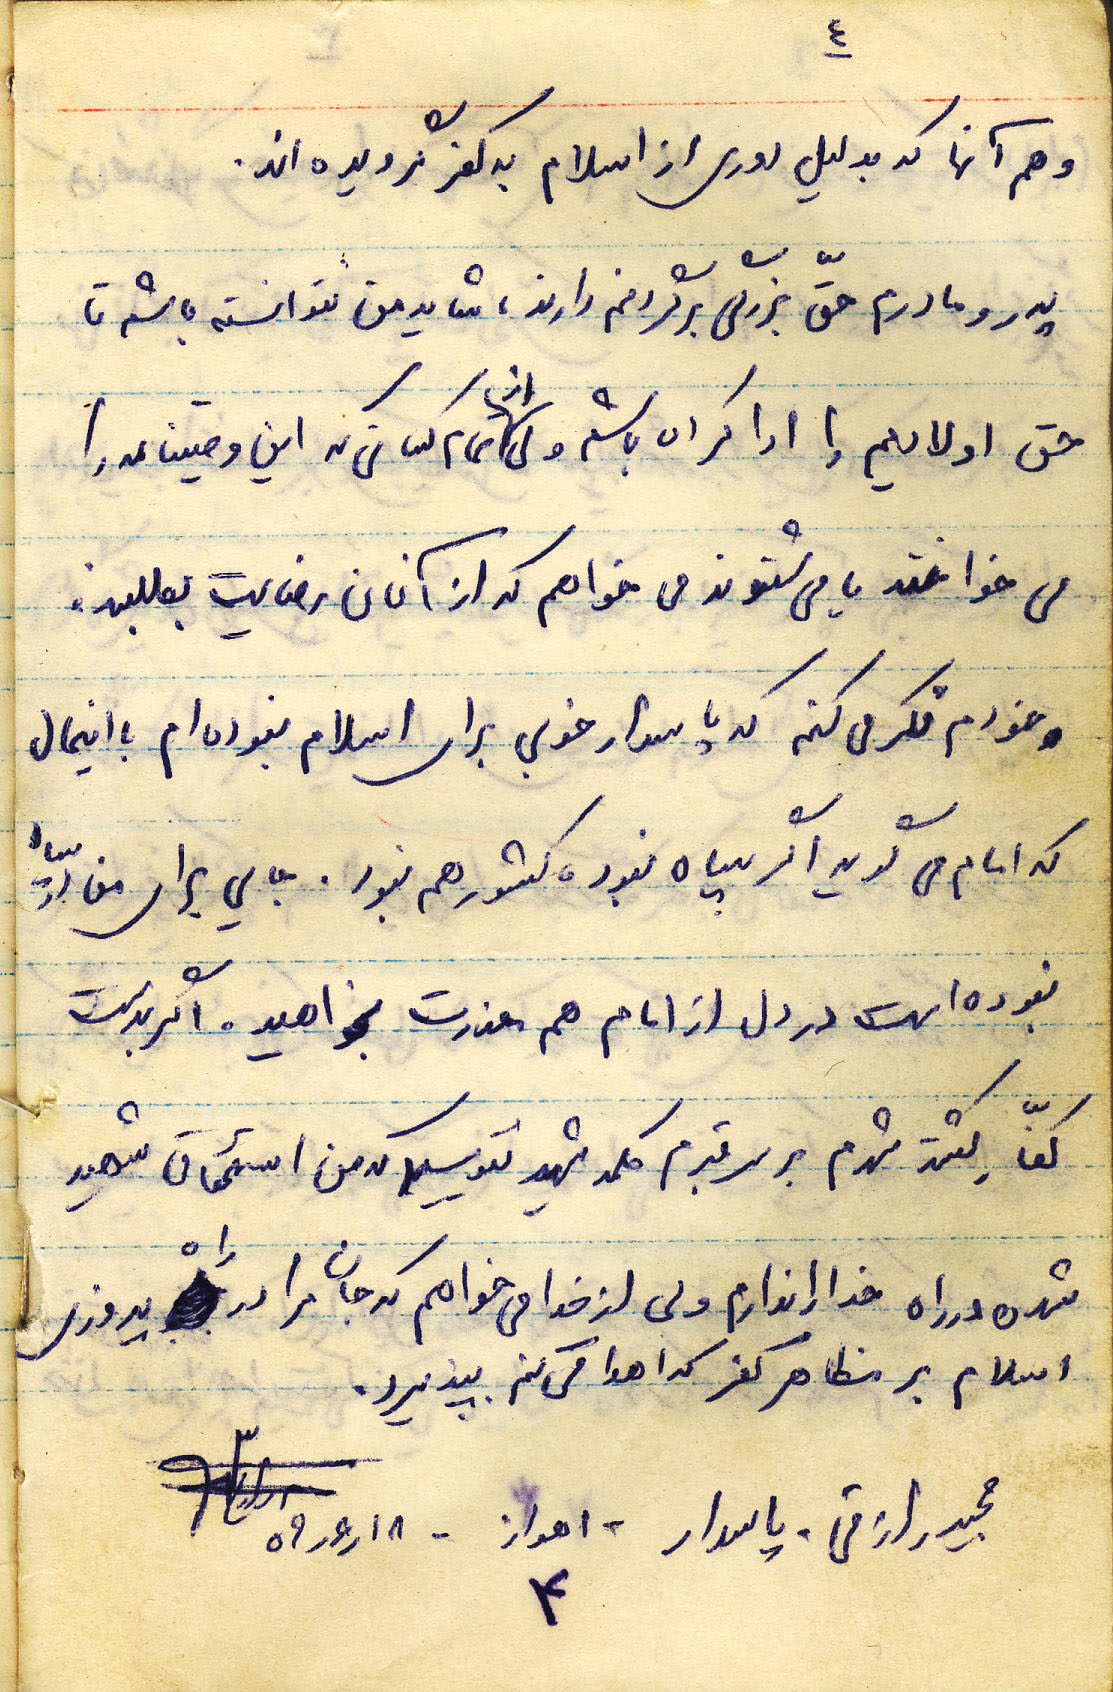 ٤
و هم آنها که بدلیل دوری از اسلام به کفر گرویده اند.
پدر و مادرم حقّ بزرگی بر گردنم دارند، شاید من نتوانسته باشم تا
حق اولادیم را ادا کرده باشم ولی از تمام کسانی که این وصیتنامه را
می خوانند یا می شنوند می خواهم که از آنان رضایت بطلبند.
و خودم فکر می کنم که پاسدار خوبی برای اسلام نبوده ام با اینحال
که امام می گوید اگر سپاه نبود، کشور هم نبود. جایی برای من در سپاه
نبوده است در دل از امام هم معذرت بخواهید. اگر بدست
کفّار کشته شدم بر سر قبرم کلمه شهید ننویسید که من استحقاق شهید
شدن در راه خدا را ندارم ولی از خدا می خواهم که جان مرا در راه پیروزی
اسلام بر مظاهر کفر که اهدا می کنم بپذیرد.
مجید رازقی - پاسدار - اهواز - ۵۹٫۶٫۱۸
۴